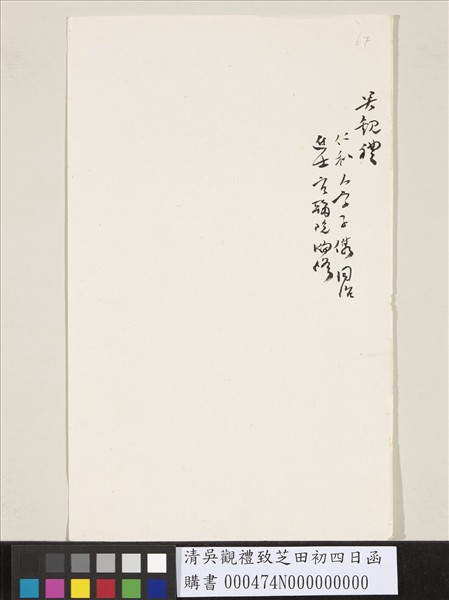 67
吴觀禮
仁和人字子儁同治
進士官編修
清吳觀禮致芝田初四日函
購書 000474N000000000